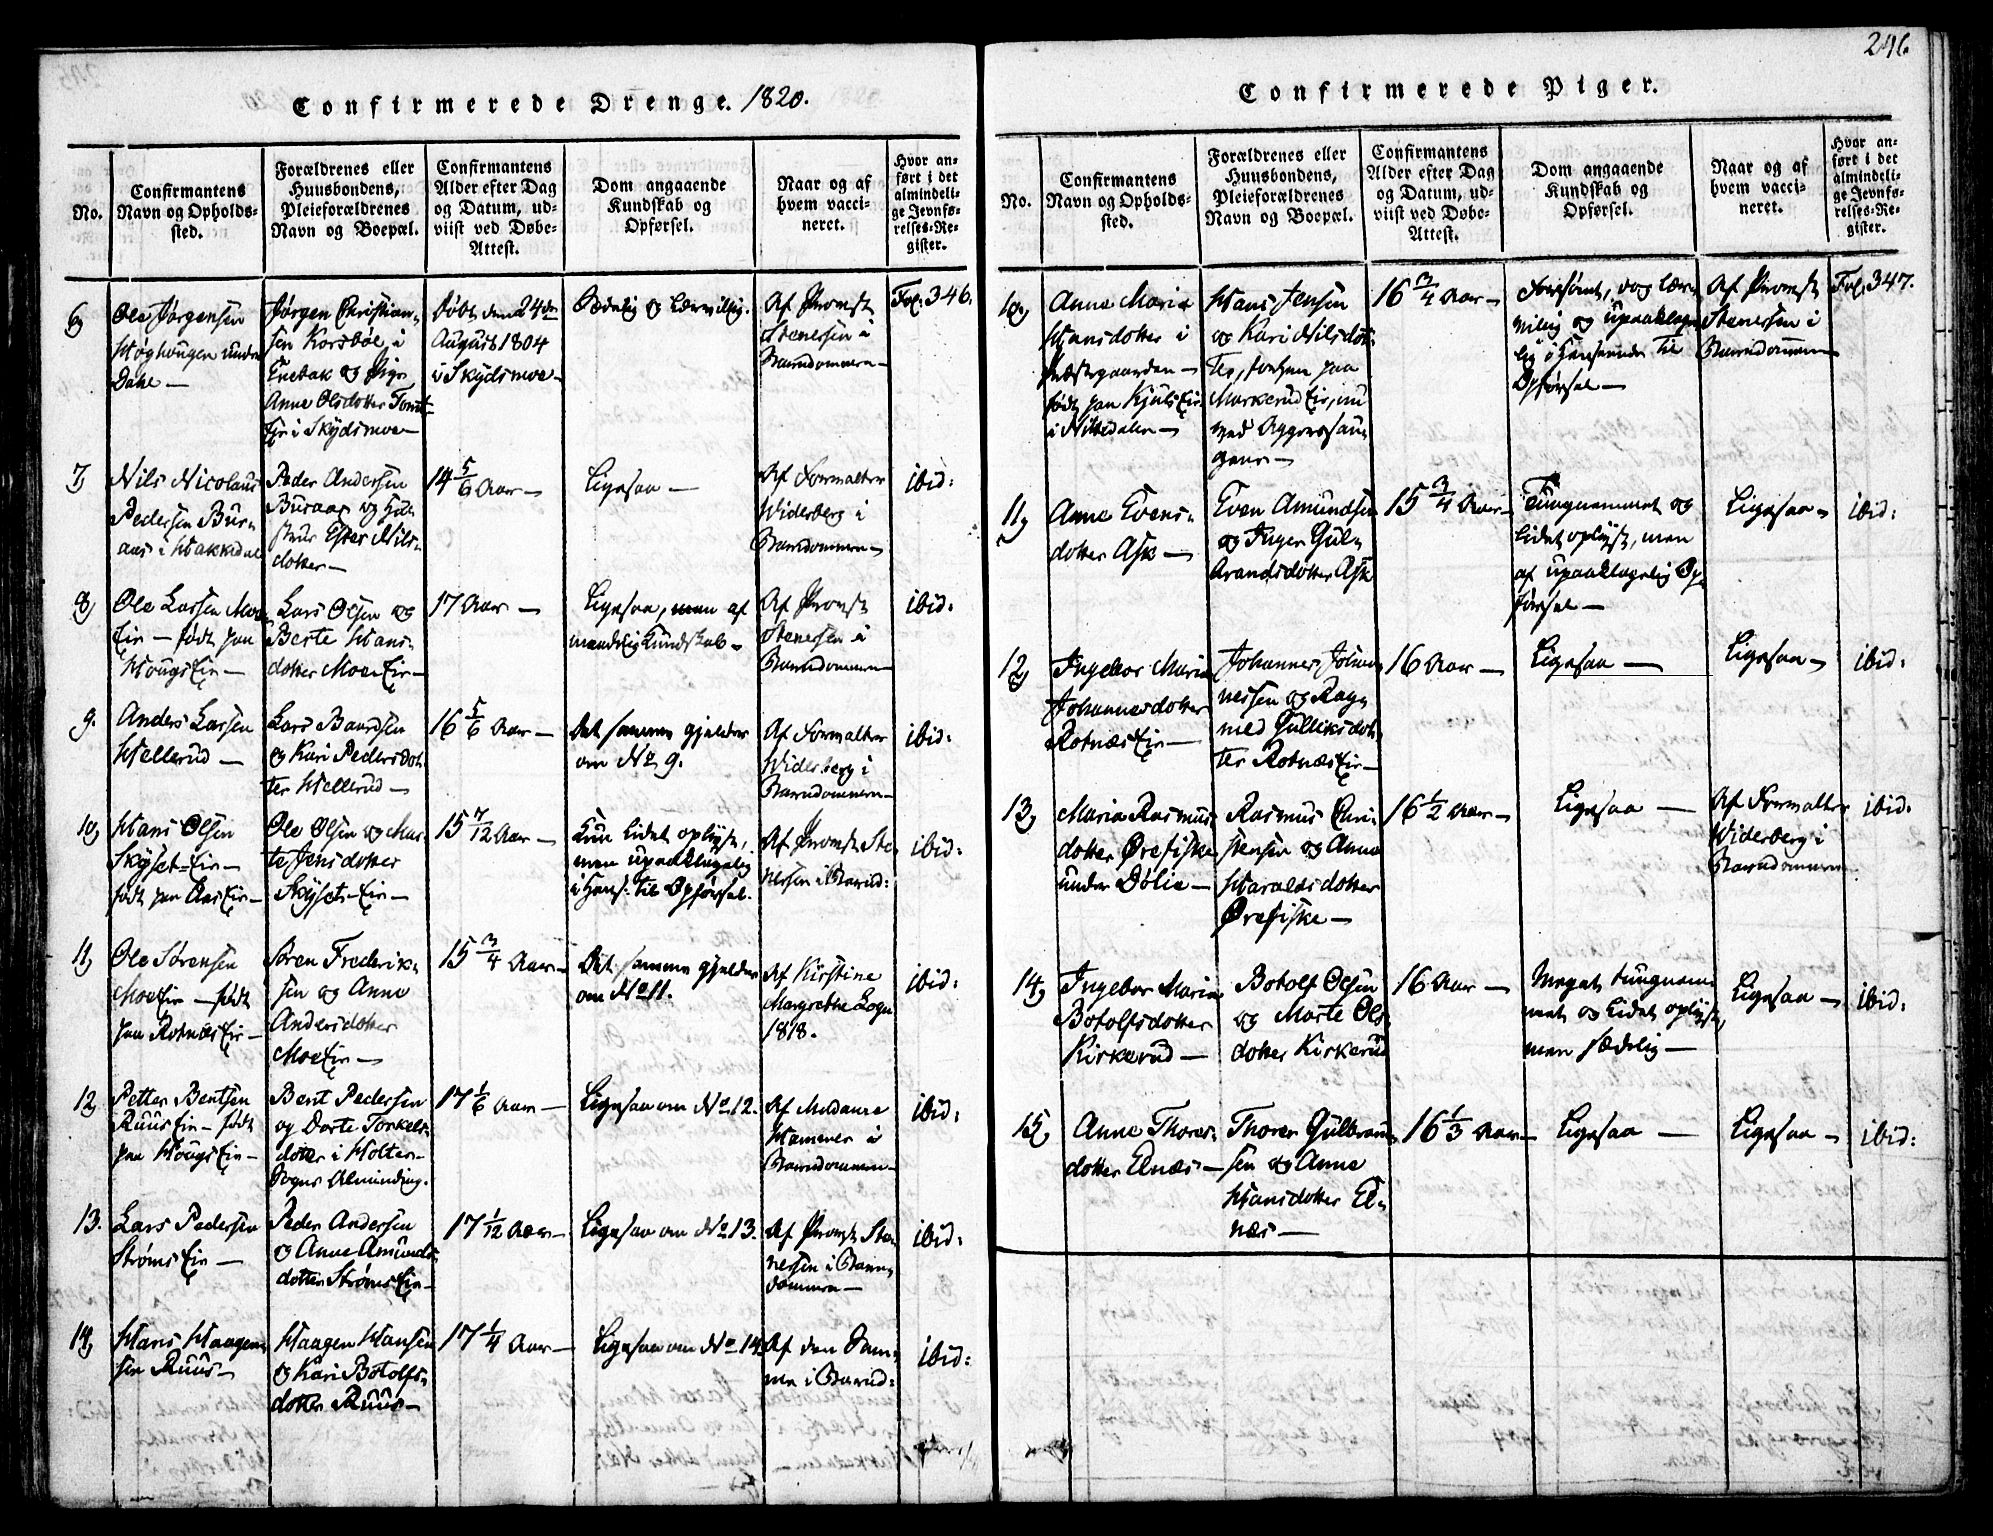 Confirmerede Drenge. 1820.
No.
Confirmantens
Navn og Opholds-
sted.
Forældrenes eller
Huusbondens,
Pleieforældrenes
Navn og Boepæl.
Confirmantens
Alder efter Dag
og Datum, ud-
viist ved Døbe-
Attest.
Dom angaaende
Kundskab og
Opførsel.
Naar og af
hvem vacci-
neret.
Hvor an-
ført i det
almindeli-
ge Jevnfø-
relses-Re-
gister.
6)
Ole Jørgensen
Høghougen under
Dahl —
Jørgen Christian-
sen Korsbøl i
Enebak og Pige
Anne Olsdotter Tomt-
Eje i Skydsmoe —
døbt den 24de
August 1804
i Skydsmoe —
Sædelig og lærvillig.
Af Provst
Stenersen i
Barndommen —
Fol. 346.
7)
Nils Nicolaus
Pedersen Bur-
aas i Hakkedal
Peder Andersen
Buraas og Hu-
strue Ester Nils-
dotter —
14 5/6 Aar —
Ligesaa —
Af Forvalter
Widerberg i
Barndommen —
ibid:
8)
Ole Larsen Moe
Eie — født paa
Hougs Eie —
Lars Olsen og
Berte Hans-
dotter Moe Eie —
17 Aar —
Ligesaa, men af
maadelig Kundskab —
Af Provst
Stenersen i
Barndommen —
ibid:
9.
Anders Larsen
Hellerud —
Lars Baardsen
og Kari Pedersdot-
ter Hellerud —
16 5/6 Aar —
Det samme gjelder
om No 9.
Af Forvalter
Widerberg i
Barndommen —
ibid:
10)
Hans Olsen
Skyset-Eie —
født paa Aas Eie —
Ole Olsen og Mar-
te Jensdotter
Skyset-Eie —
15 7/12 Aar —
Kun lidet oplyst,
men upaaklagelig
i Hens: til Opførsel.
Af Provst Ste-
nersen i Barnd:
ibid:
11)
Ole Sørensen
Moe Eie — født
paa Rotnæs Eie —
Søren Frederik-
sen og Anne
Andersdotter
Moe Eie —
15 3/4 Aar —
Det samme gjelder
om No 11.
Af Kirstine
Margrethe Logn
1818.
ibid:
12)
Petter Bentsen
Ruus Eie — født
paa Hougs Eie —
Bent Pedersen
og Dorte Torkels-
dotter i Holter-
Sogns Alminding.
17 1/6 Aar —
Ligesaa om No 12.
Af Madame
Hammer i
Barndommen —
ibid:
13.
Lars Pedersen
Strøms Eie —
Peder Andersen
og Anne Amunds-
dotter Strøms Eie —
17 1/12 Aar —
Ligesaa om No 13.
Af Provst Ste-
nersen i Barn-
dommen —
ibid:
14)
Hans Haagen-
sen Ruus —
Haagen Hansen
og Kari Botolfs-
dotter Ruus —
17 1/4 Aar —
Ligesaa om No 14.
Af den Sam-
me i Barnd:
ibid:
246
Confirmerede Piger.
No.
Confirmantens
Navn og Opholds-
sted.
Forældrenes eller
Huusbondens,
Pleieforældrenes
Navn og Boepæl.
Confirmantens
Alder efter Dag
og Datum, ud-
viist ved Døbe-
Attest.
Dom angaaende
Kundskab og
Opførsel.
Naar og af
hvem vacci-
neret.
Hvor an-
ført i det
almindeli-
ge Jevnfø-
relses-Re-
gister.
10)
Anne Maria
Hansdotter i
Præstegaarden —
født paa Kjuls Eie
i Nittedalen —
Hans Jensen
og Kari Nilsdot-
ter, forhen paa
Markerud Eie, nu
ved Aggerssau-
gene —
16 3/4 Aar —
Forsømt, dog lær-
villig og upaaklage-
lig i Henseende til
Opførsel —
Af Provst
Stenersen i
Barndommen
Fol. 347.
11)
Anne Evens-
dotter Ask —
Even Amundsen
og Inger Gul-
brandsdotter Ask
15 3/4 Aar —
Tungnemmet og
lidet oplyst, men
af upaaklagelig Op-
førsel —
Ligesaa —
ibid:
12)
Ingebor Maria
Johannesdotter
Rotnæs Eie —
Johannes Johan-
nessen og Rag-
ned Gulliksdot-
ter Rotnæs Eie —
16 Aar —
Ligesaa —
Ligesaa —
ibid:
13)
Maria Rasmus-
dotter Ørefiske
under Dølie —
Rasmus Chri-
stensen og Anne
Haraldsdotter
Ørefiske —
16 1/2 Aar —
Ligesaa —
Af Forvalter
Widerberg i
Barndommen
ibid:
14)
Ingebor Maria
Botolfsdotter
Kirkerud —
Botolf Olsen
og Marte Ols-
dotter Kirkerud
16 Aar —
Meget tungnem-
met og lidet oplyst,
men sædelig —
Ligesaa —
ibid:
15)
Anne Thores-
dotter Elnæs —
Thorer Gulbrand-
sen og Anne
Hansdotter El-
næs —
16 1/3 Aar —
Ligesaa —
Ligesaa —
ibid: